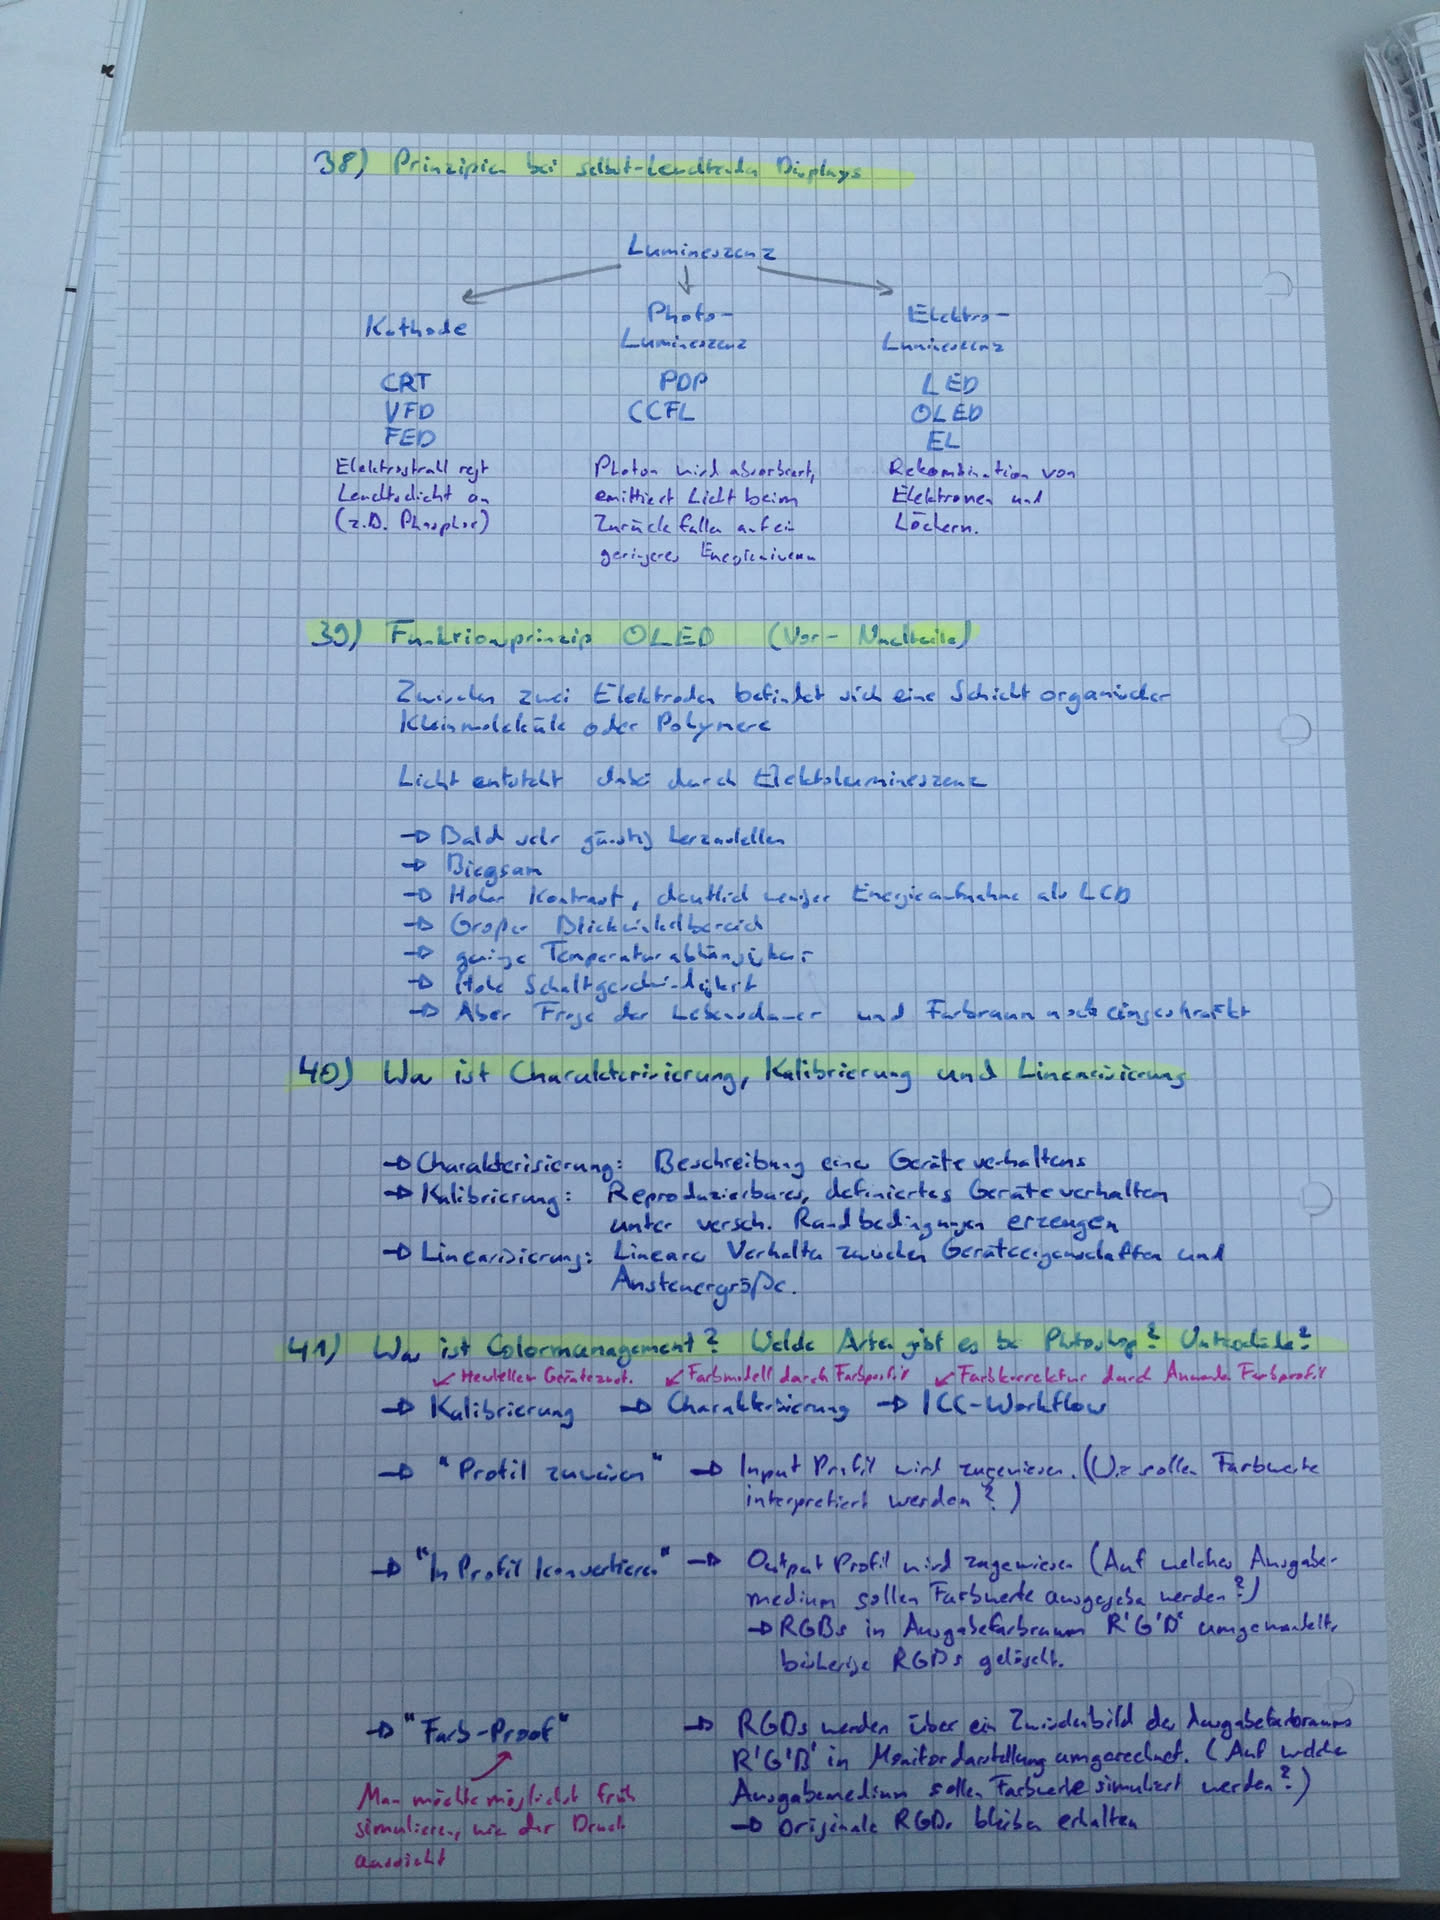 38) Prinzipien bei selbst-leuchtenden Displays
Lumineszenz
Kathode
Photo-
Lumineszenz
Elektro-
Lumineszenz
CRT
VFD
FED
PDP
CCFL
LED
OLED
EL
Elektrostrahl regt
Leuchtschicht an
(z.B. Phosphor)
Photon wird absorbiert,
emittiert Licht beim
Zurückfallen auf ein
geringeres Energieniveau
Rekombination von
Elektronen und
Löchern.
39) Funktionsprinzip OLED (Vor- Nachteile)
Zwischen zwei Elektroden befindet sich eine Schicht organischer
Kleinmoleküle oder Polymere
Licht entsteht dabei durch Elektolumineszenz
→ Bald sehr günstig herzustellen
→ Biegsam
→ Hoher Kontrast, deutlich weniger Energieaufnahme als LCD
→ Großer Blickwinkelbereich
→ geringe Temperaturabhängigkeit
→ Hohe Schaltgeschwindigkeit
→ Aber Frage der Lebensdauer und Farbraum noch eingeschränkt
40) Was ist Charakterisierung, Kalibrierung und Linearisierung
→ Charakterisierung: Beschreibung eines Geräteverhaltens
→ Kalibrierung: Reproduzierbares, definiertes Geräteverhalten
unter versch. Randbedingungen erzeugen
→ Linearisierung: Lineares Verhalten zwischen Geräteeigenschaften und
Ansteuergröße.
41) Was ist Colormanagement? Welche Arten gibt es bei Photoshop? Unterschiede?
↙ Herstellen Gerätezust. ↙ Farbmodell durch Farbprofil ↙ Farbkorrektur durch Anwenden Farbprofil
→ Kalibrierung → Charakterisierung → ICC-Workflow
→ "Profil zuweisen" → Input Profil wird zugewiesen. (Wie sollen Farbwerte
interpretiert werden?)
→ "In Profil konvertieren" → Output Profil wird zugewiesen (Auf welches Ausgabe-
medium sollen Farbwerte ausgegeben werden?)
→ RGBs in Ausgabefarbraum R'G'B' umgewandelt,
bisherige RGBs gelöscht.
→ "Farb-Proof" → RGBs werden über ein Zwischenbild des Ausgabefarbraums
R'G'B' in Monitordarstellung umgerechnet. (Auf welche
Ausgabemedium sollen Farbwerte simuliert werden?)
→ Originale RGBs bleiben erhalten
Man möchte möglichst früh
simulieren, wie der Druck
aussieht